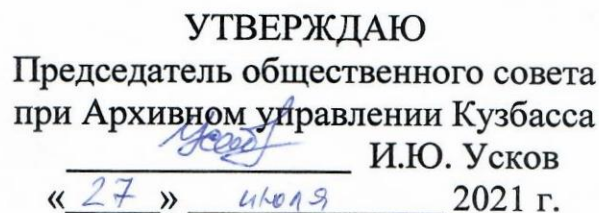 УТВЕРЖДАЮ
Председатель общественного совета
при Архивном управлении Кузбасса
И.Ю. Усков
«27» июля 2021 г.